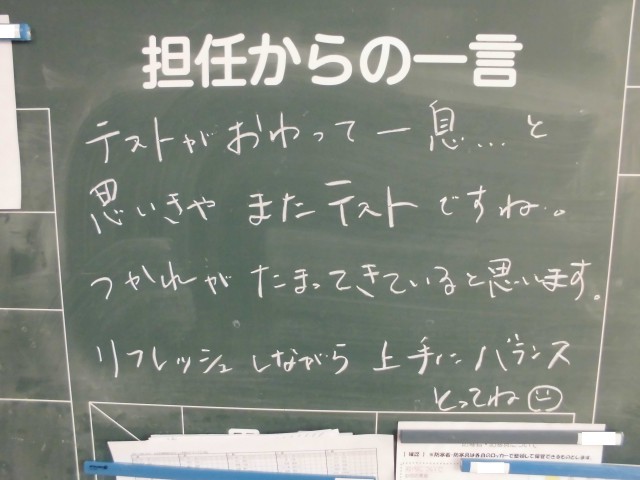 担任からの一言
テストがおわって一息…と
思いきや またテストですね。
つかれが たまってきていると思います。
リフレッシュしながら 上手にバランス
とってね